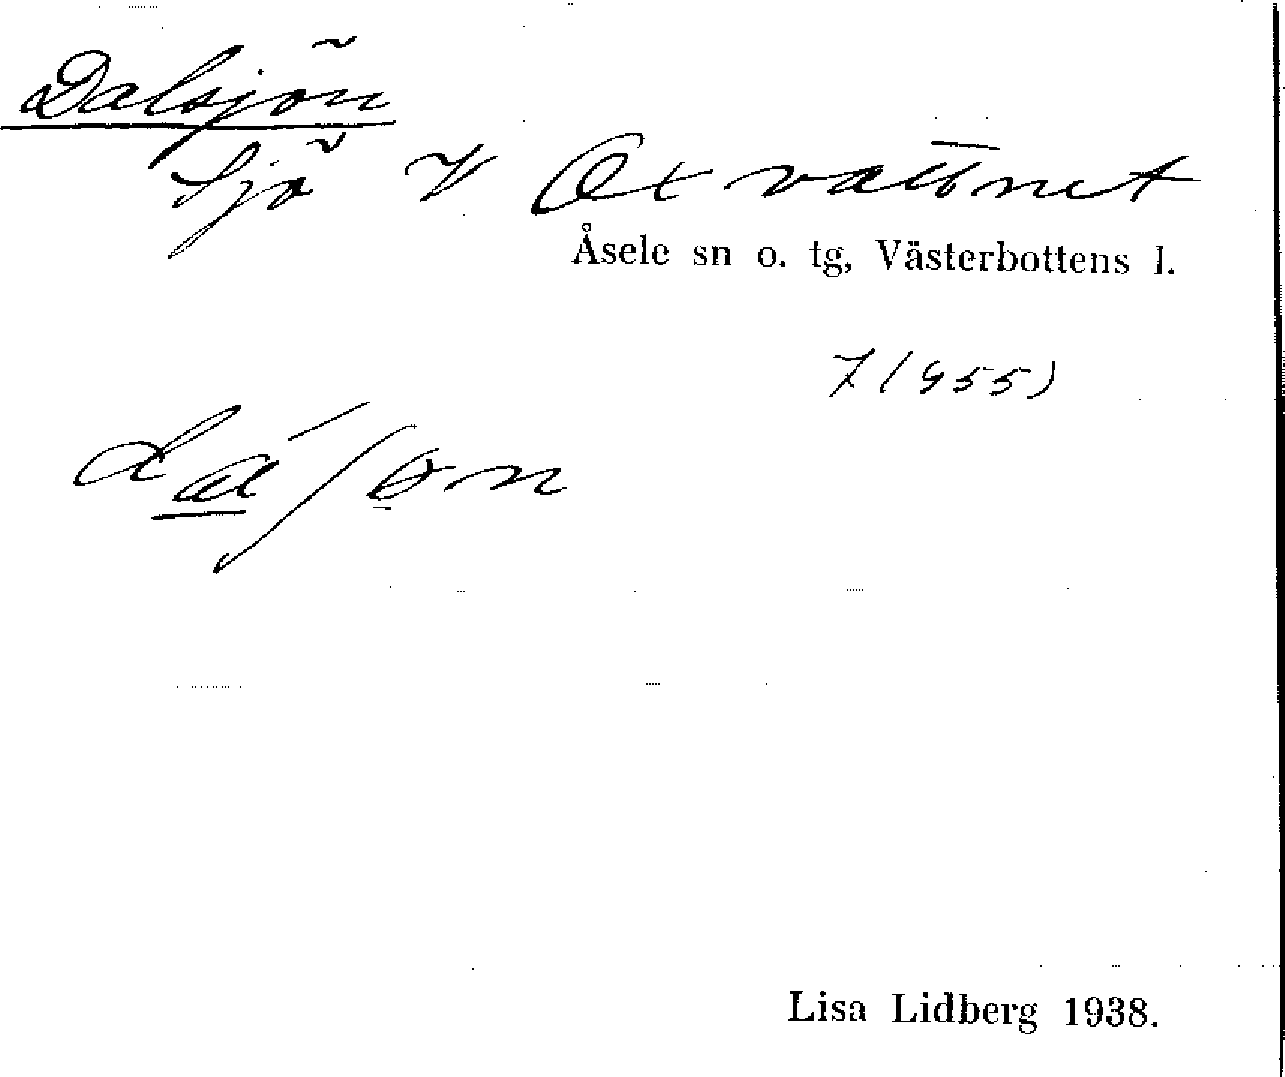 Dalsjön
Sjö V Oxvattnet
Åsele sn o. tg, Västerbottens l.
7 (955)
Lisa Lidberg 1938.